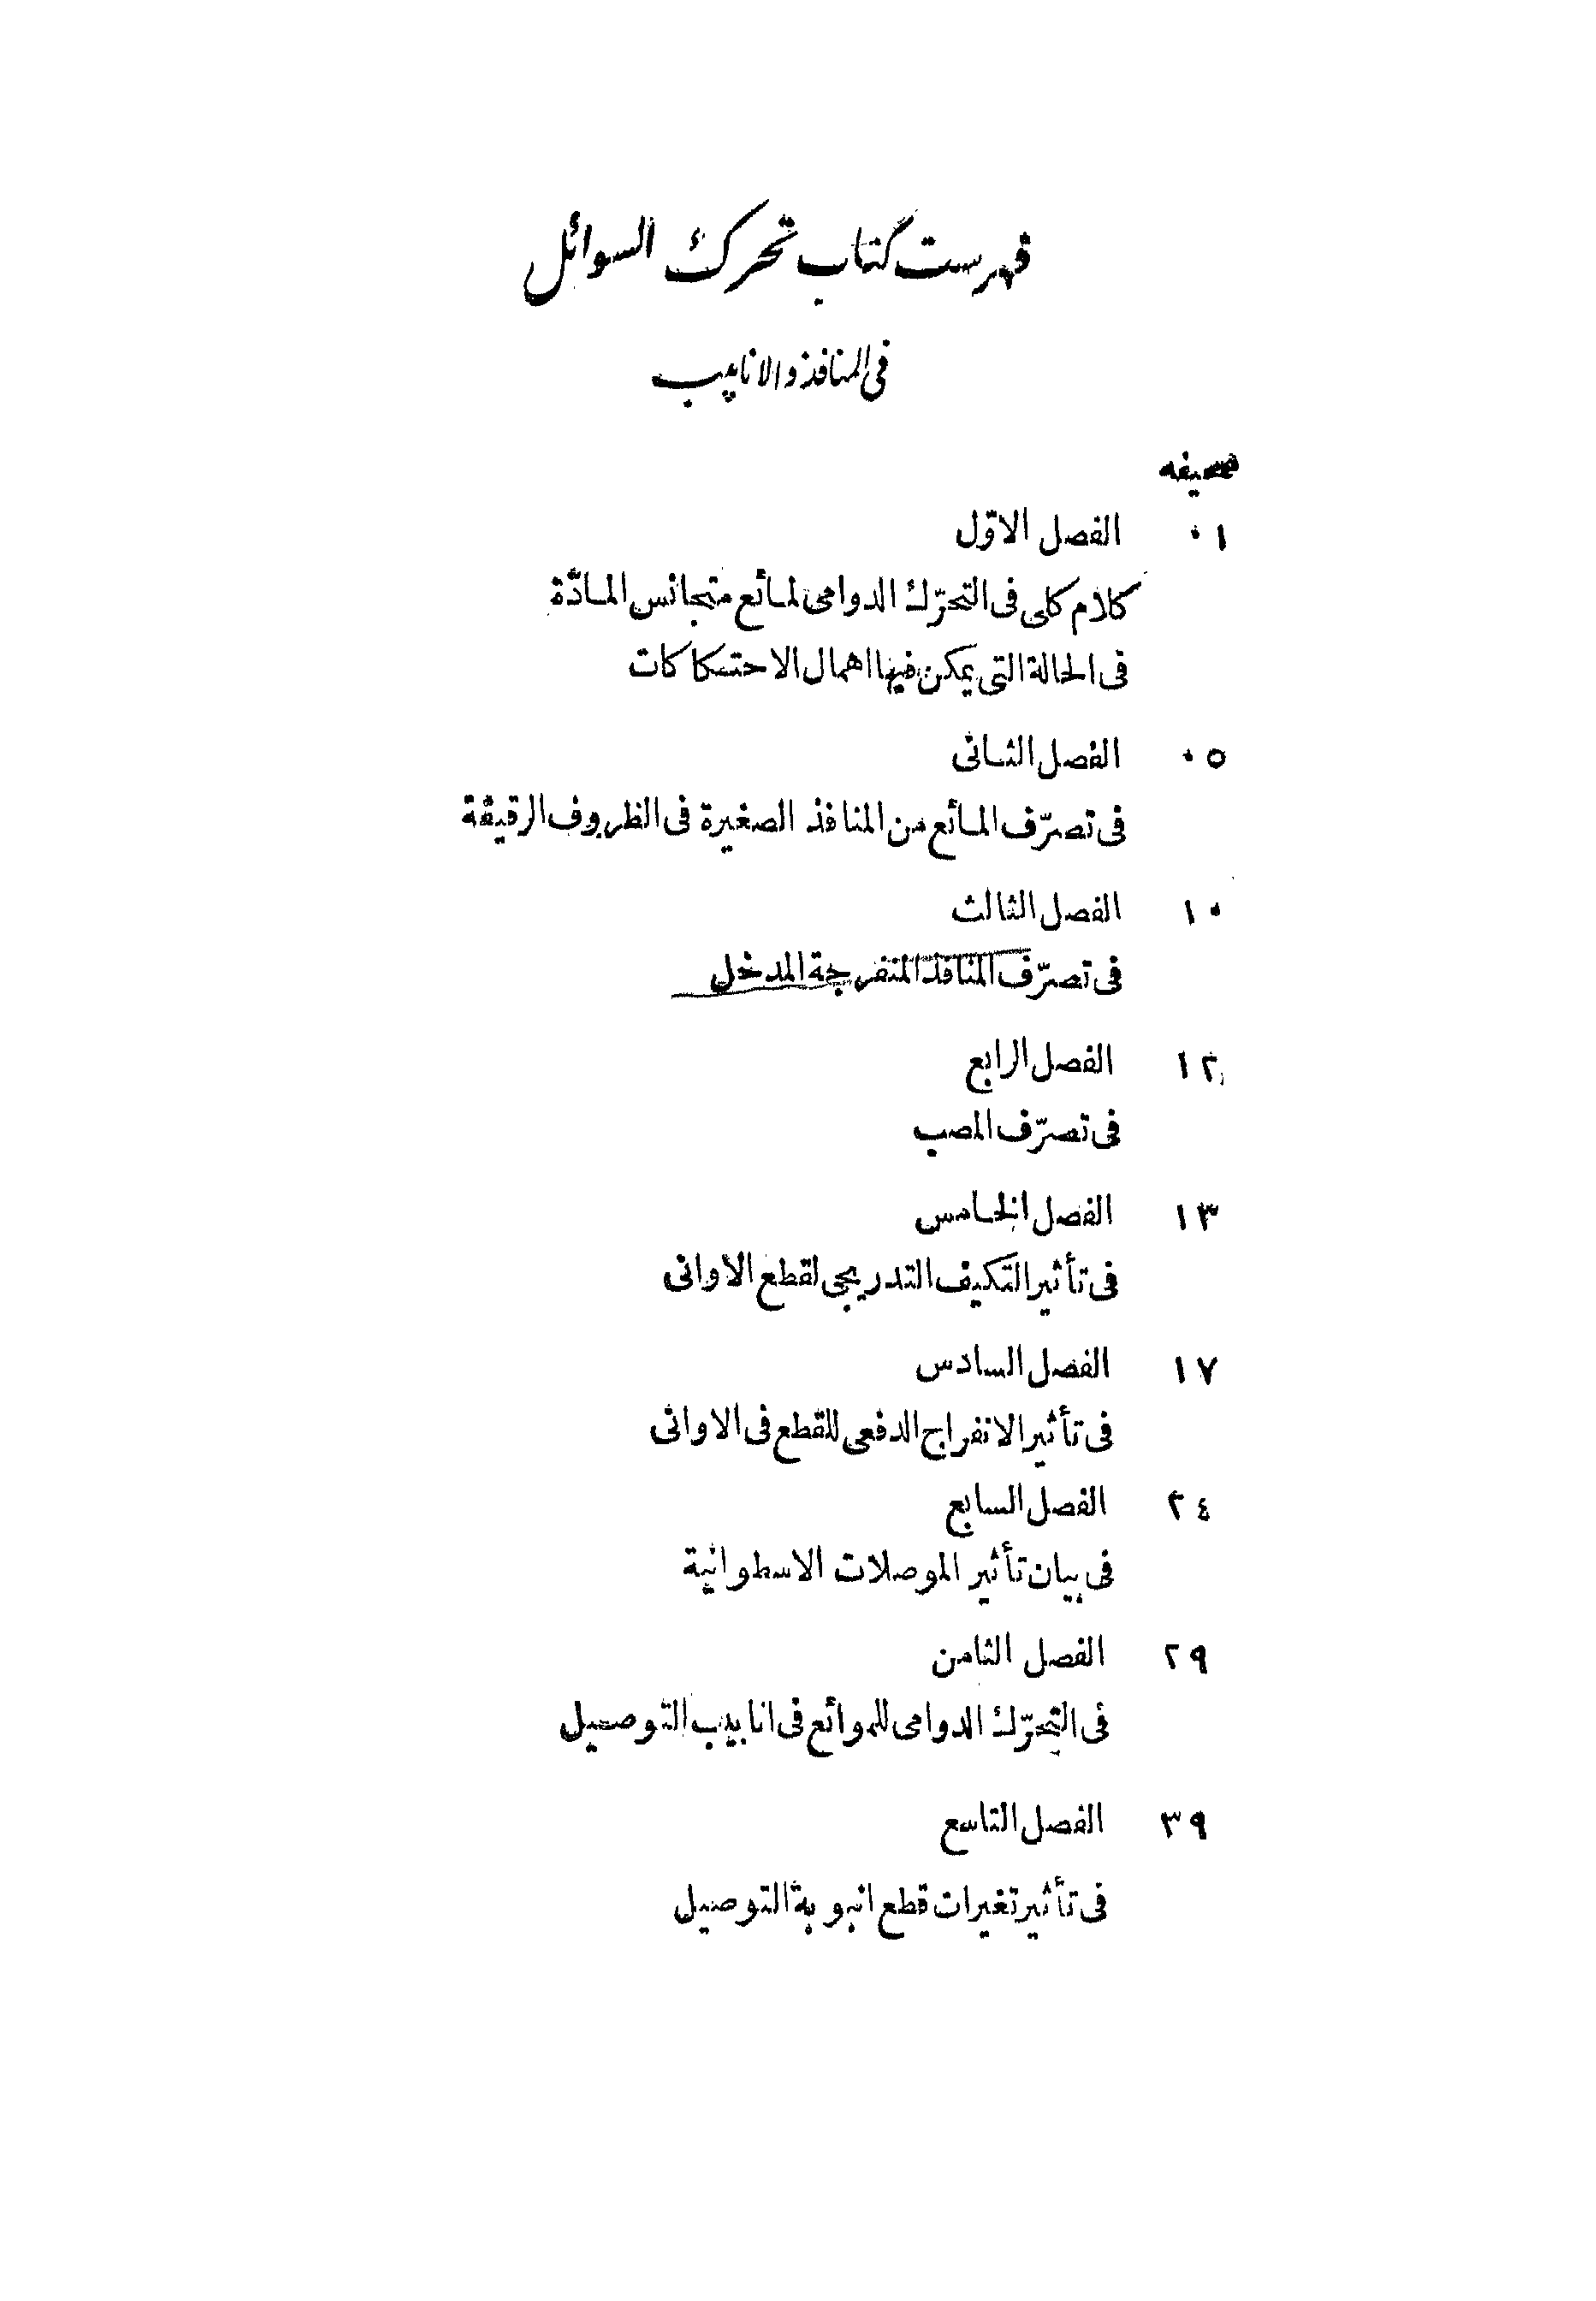 فهرست كتاب تحرك السوائل
فى المنافذ والانابيب
صحيفه
٠١ الفصل الاوّل
كلام كلى فى التحرّك الدوامى لمائع متجانس المادّة
فى الحالة التى يمكن فيها اهمال الاحتكاكات
٠٥ الفصل الثانى
فى تصرّف المائع من المنافذ الصغيرة فى الظروف الرقيقة
١٠ الفصل الثالث
فى تصرّف المنافذ المنفرجة المدخل
١٢ الفصل الرابع
فى تصرّف المصب
١٣ الفصل الخامس
فى تأثير التكيف التدريجى لقطع الاوانى
١٧ الفصل السادس
فى تأثير الانفراج الدفعى للقطع فى الاوانى
٢٤ الفصل السابع
فى بيان تأثير الموصلات الاسطوانية
٢٩ الفصل الثامن
فى التحرّك الدوامى للموائع فى انابيب التوصيل
٣٩ الفصل التاسع
فى تأثير تغيرات قطع انبوبة التوصيل